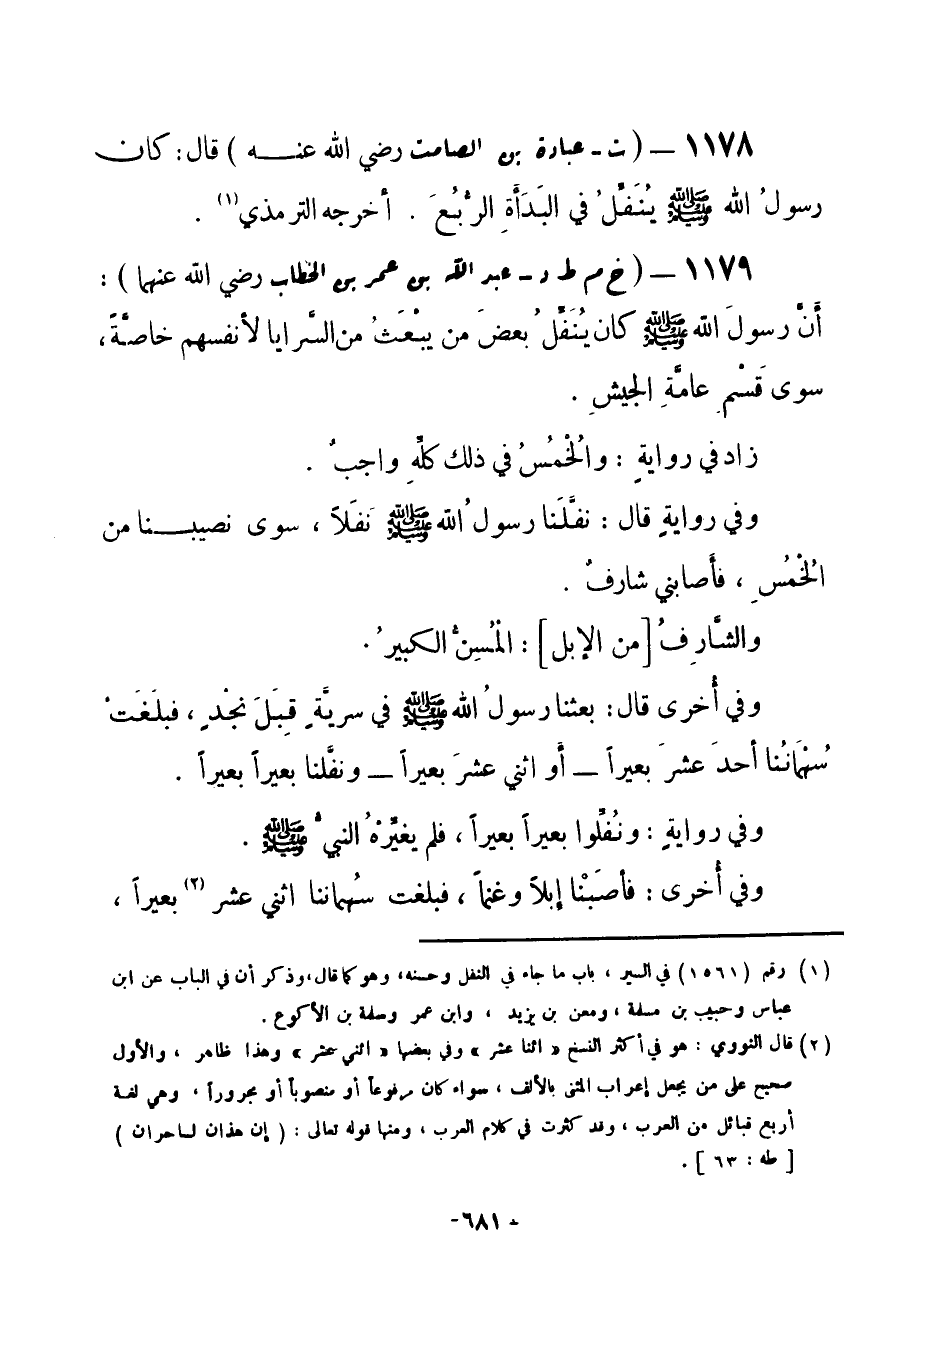 ١١٧٨ – ( ت - عبادة بن الصامت رضي الله عنــــه ) قال : كان
رسولُ الله ﷺ يُنَفِّلُ في البَدَأَةِ الرُّبُعَ . أخرجه الترمذي(١) .
١١٧٩ – ( خ م ط د - عبد الله بن عمر بن الخطاب رضي الله عنهما ) :
أَنَّ رسولَ الله ﷺ كان يُنَفِّلُ بعضَ من يبْعَثُ من السَّرايا لأنفسهم خاصَّةً ،
سوى قَسْمِ عامَّةِ الجيشِ .
زاد في روايةٍ : والْخُمْسُ في ذلك كلِّهِ واجبٌ .
وفي روايةٍ قال : نفَّلَنا رسولُ الله ﷺ نَفَلاً ، سوى نصيبــــنا من
الْخُمْسِ ، فأَصابني شارفٌ .
والشَّارِفُ [ من الإبل ] : الْمُسِنُّ الكبيرُ .
وفي أُخرى قال : بعثنا رسولُ الله ﷺ في سريَّةٍ قِبَلَ نجْدٍ ، فبلَغَتْ
سُهْمَانُنا أحدَ عشرَ بعيراً – أَو اثني عشرَ بعيراً – ونفَّلنا بعيراً بعيراً .
وفي روايةٍ : ونُفِّلوا بعيراً بعيراً ، فلم يغيِّرْهُ النبيُّ ﷺ .
وفي أُخرى : فأَصَبْنا إبلاً وغنماً ، فبلغت سُهماننا اثني عشر (٢) بعيراً ،
(١) رقم (١٥٦١) في السير ، باب ما جاء في النفل وحسنه ، وهو كما قال ، وذكر أن في الباب عن ابن
عباس وحبيب بن مسلمة ، ومعن بن يزيد ، وابن عمر وسلمة بن الأكوع .
(٢) قال النووي : هو في أكثر النسخ « اثنا عشر » وفي بعضها « اثني عشر » وهذا ظاهر ، والأول
صحيح على من يجعل إعراب المثنى بالألف ، سواء كان مرفوعاً أو منصوباً أو مجروراً ، وهي لغة
أربع قبائل من العرب ، وقد كثرت في كلام العرب ، ومنها قوله تعالى : ( إن هذان لساحران )
[ طه : ٦٣ ] .
- ٦٨١ -